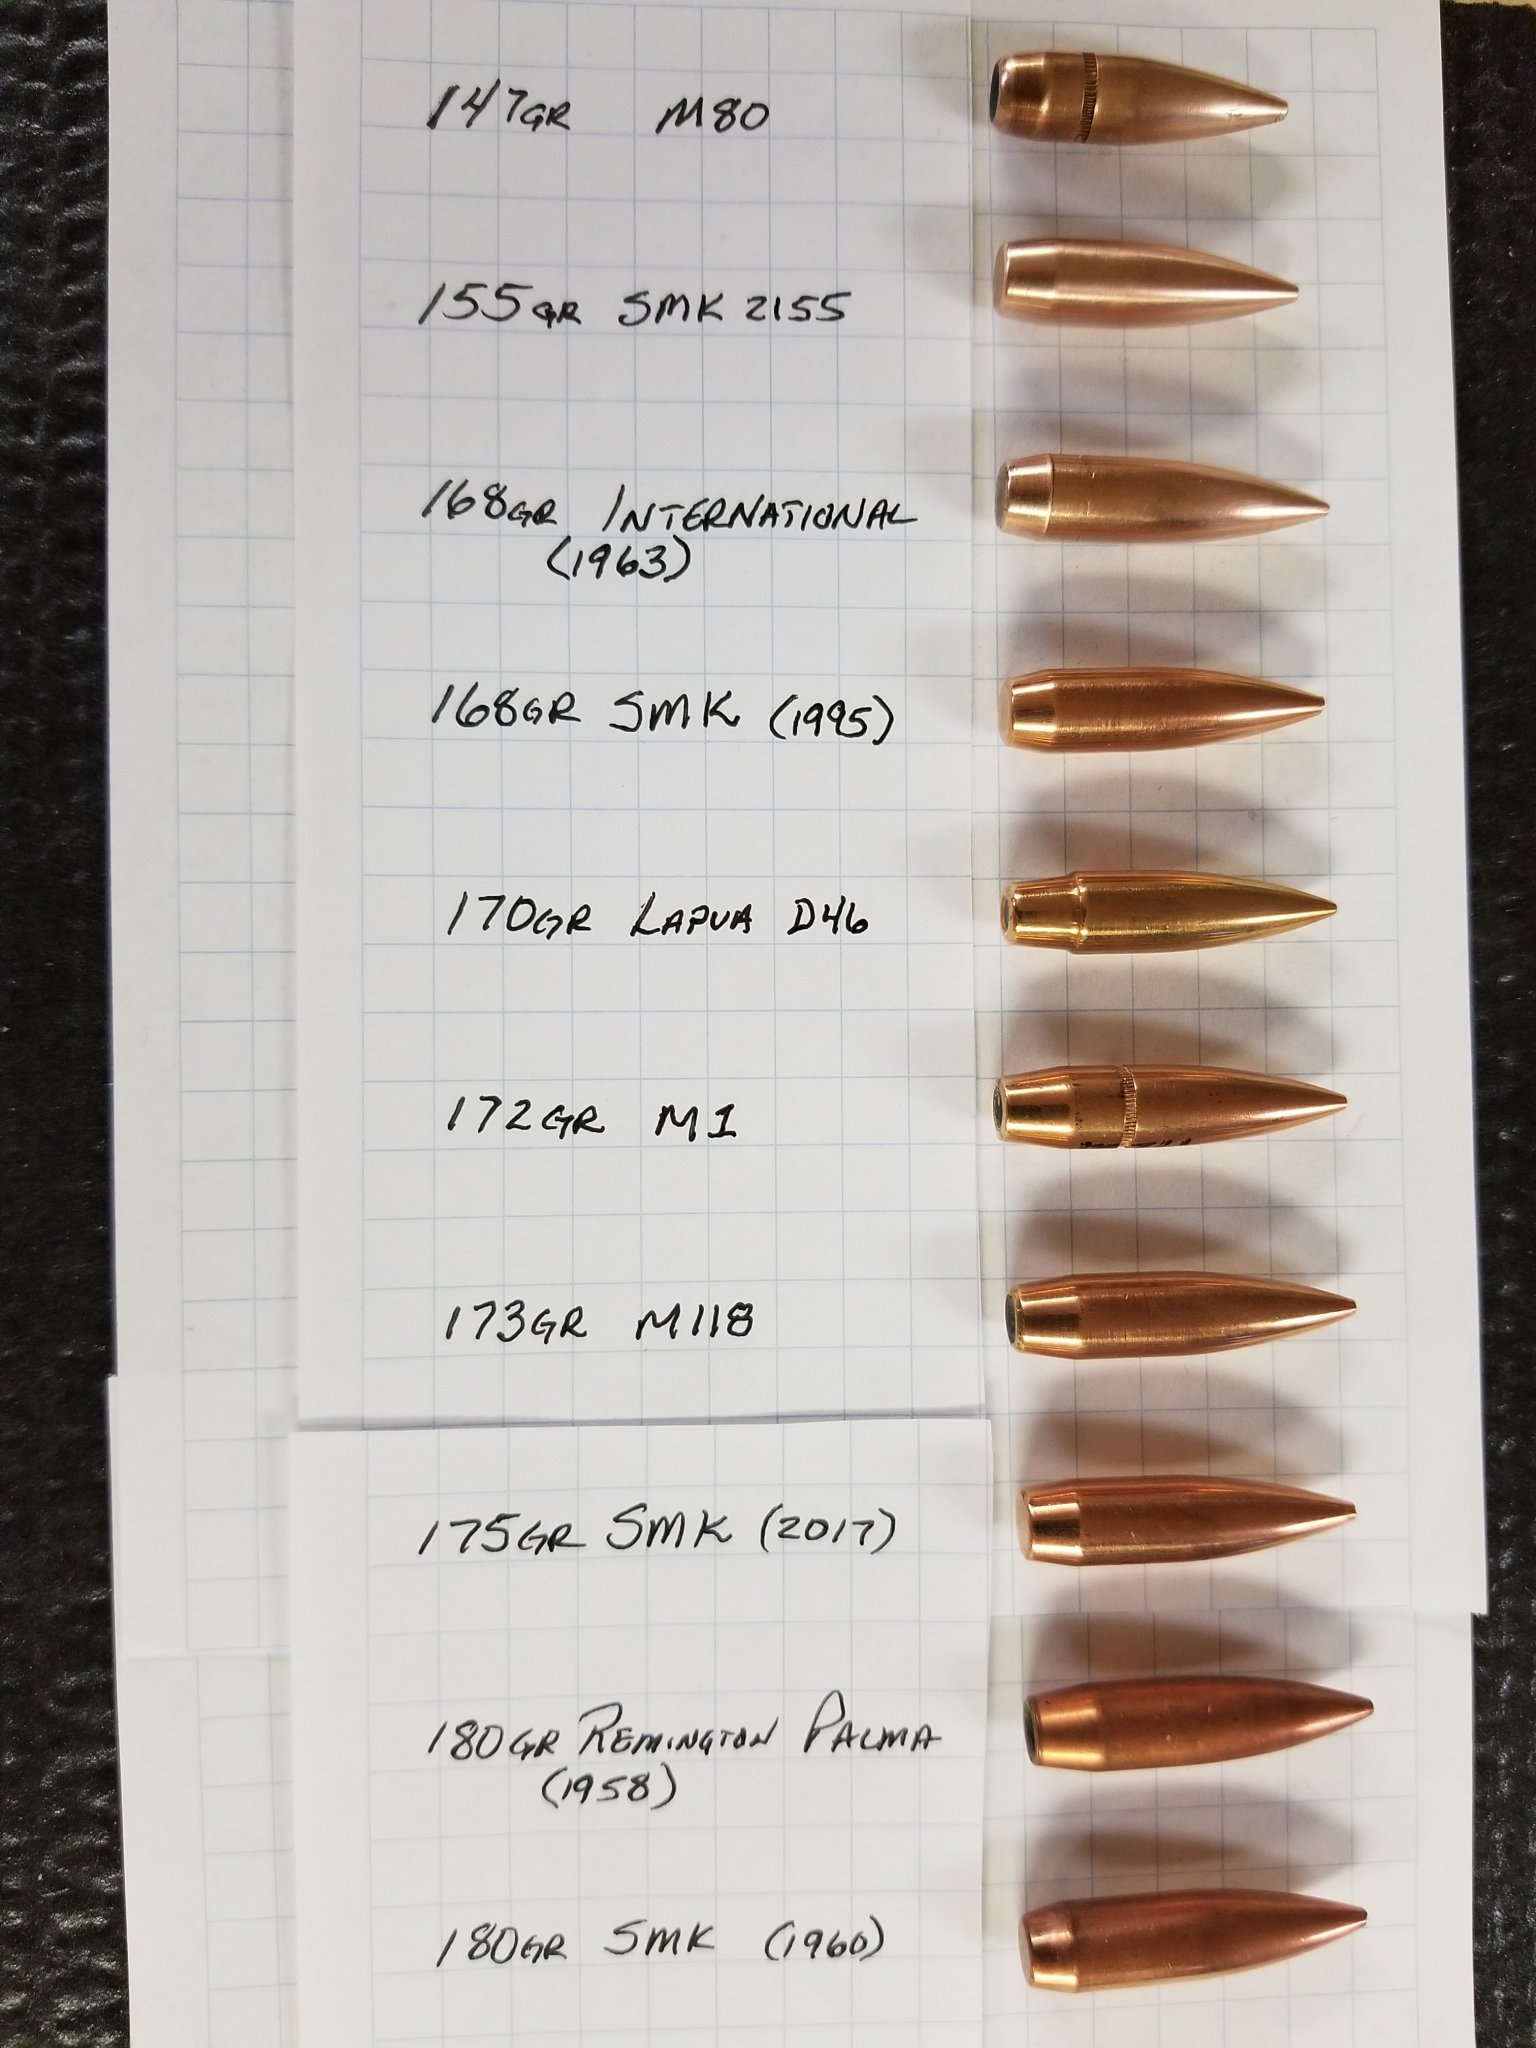 147GR M80
155GR SMK 2155
168GR INTERNATIONAL
(1963)
168GR SMK (1995)
170GR LAPUA D46
172GR M1
173GR M118
175GR SMK (2017)
180GR REMINGTON PALMA
(1958)
180GR SMK (1960)